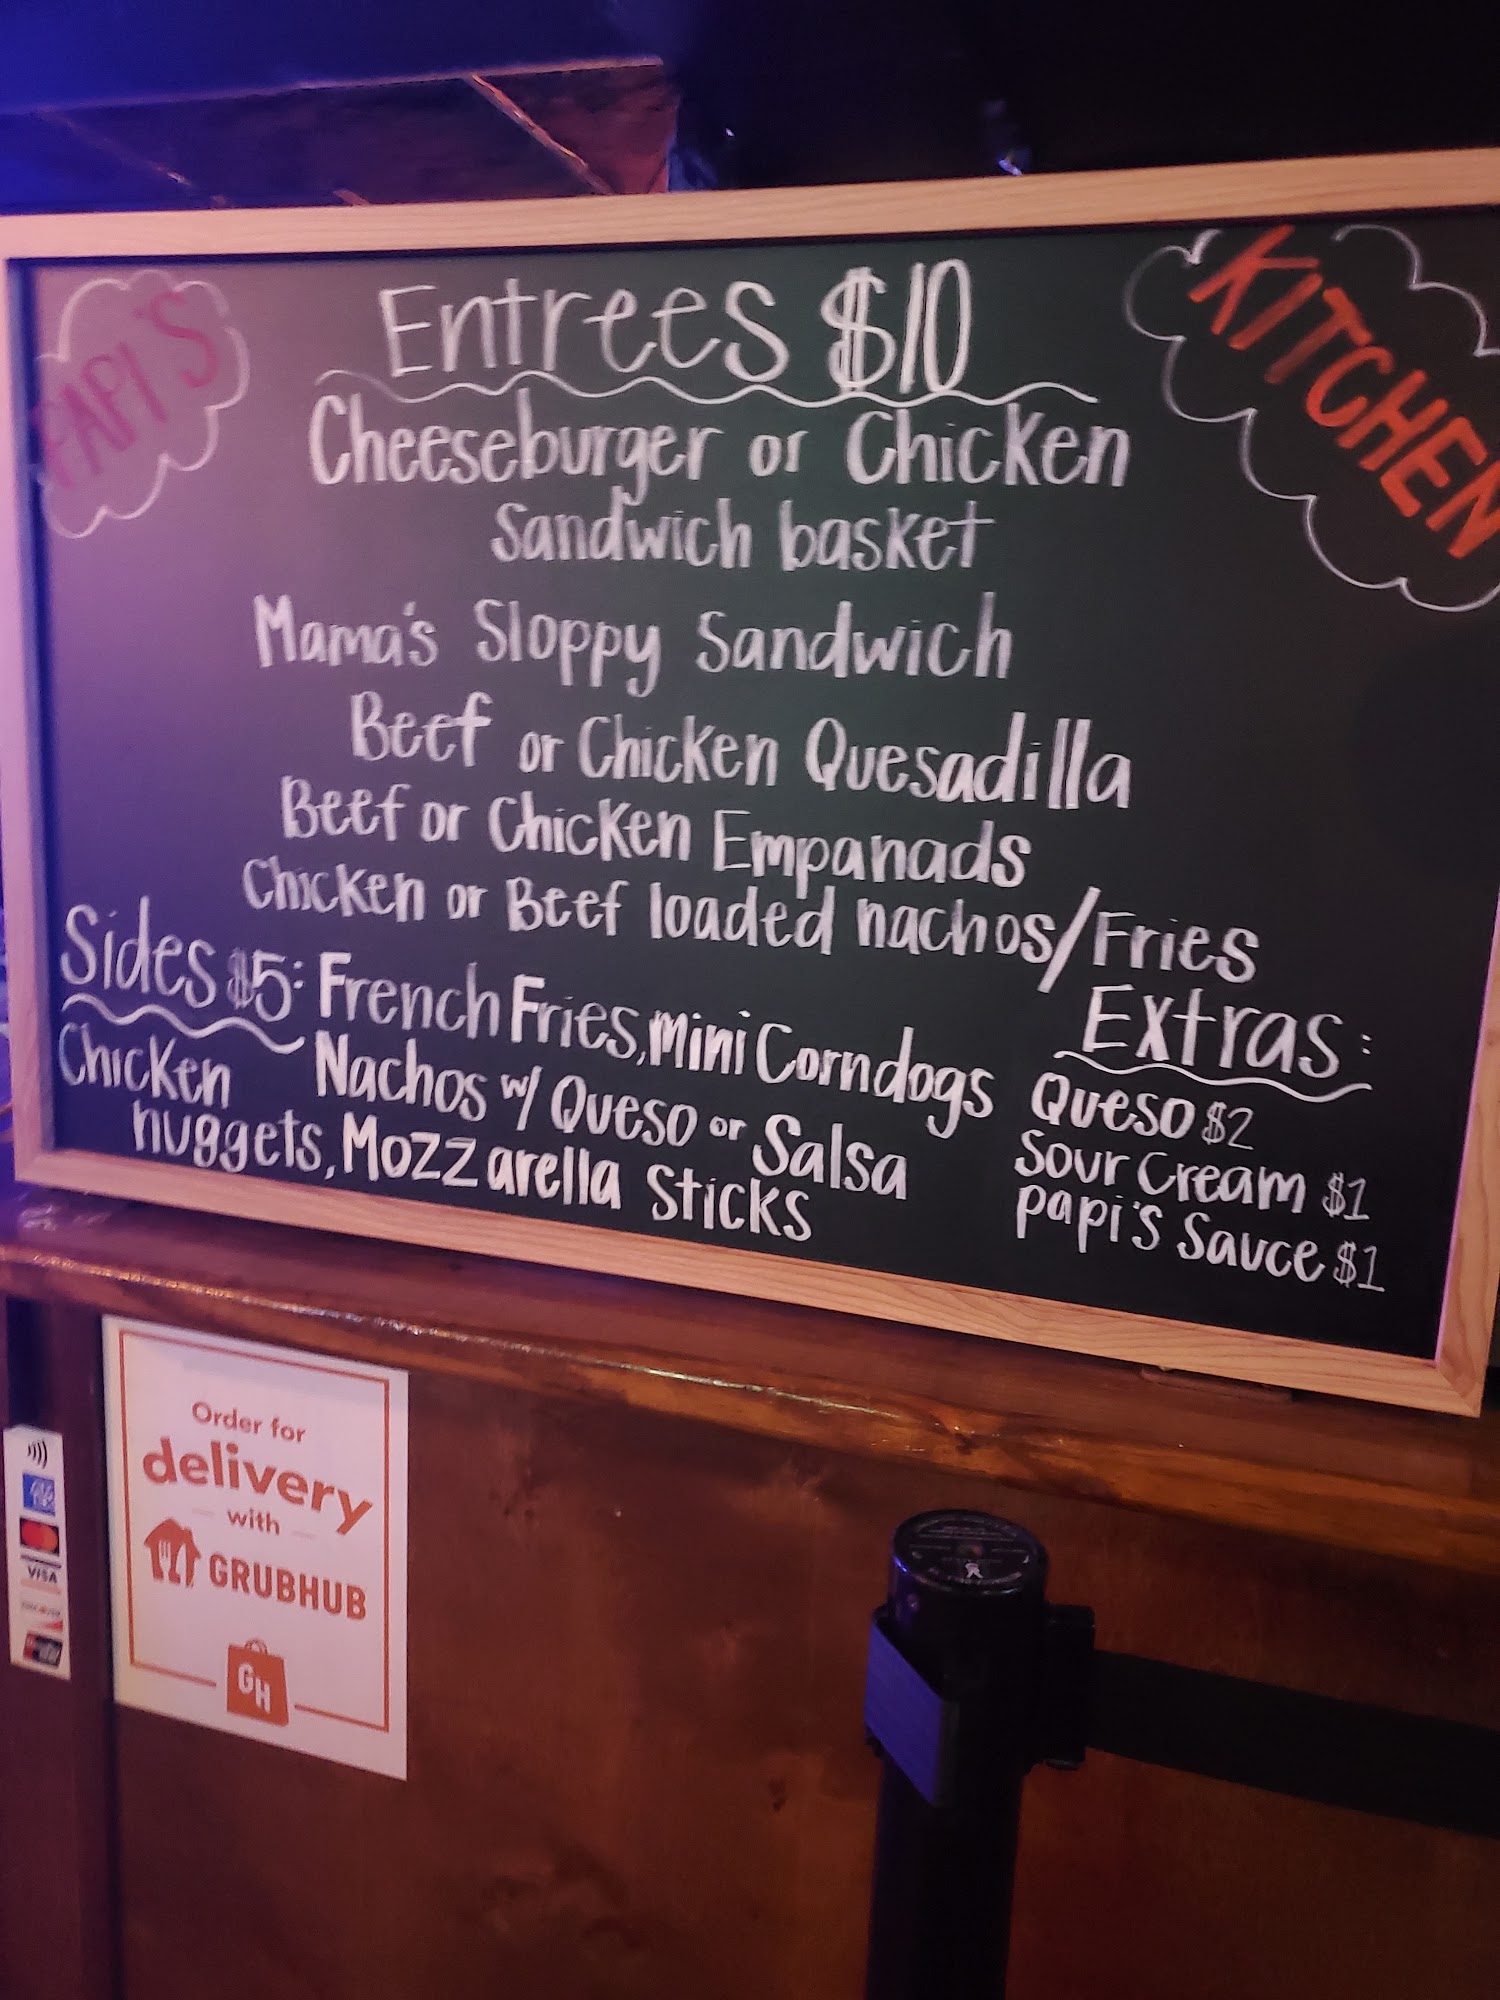 PAPI'S
KITCHEN
Entrees $10
Cheeseburger or Chicken
Sandwich basket
Mama's Sloppy Sandwich
Beef or Chicken Quesadilla
Beef or Chicken Empanads
Chicken or Beef loaded nachos/Fries
Sides $5: French Fries, Mini Corndogs
Chicken Nachos w/ Queso or Salsa
nuggets, Mozzarella Sticks
Extras:
Queso $2
Sour Cream $1
papi's Sauce $1
Order for
delivery
with
GRUBHUB
GH
VISA